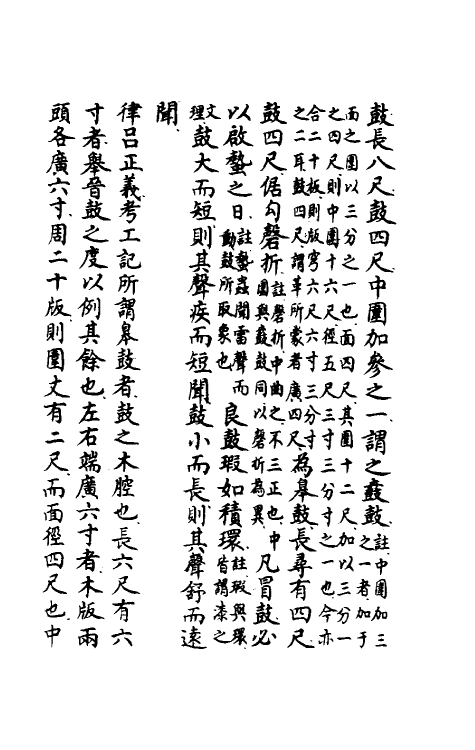 鼓長八尺鼓四尺中圍加參之一謂之鼖鼓註中圍加三之一者加于
面之圍以三分之一也面四尺其圍十二尺加以三分一之四尺則中圍十六尺徑五尺三寸三分寸之一也今亦
合二十板則版穹六尺六寸三分寸之二耳鼓四尺謂革所蒙者廣四尺為皋鼓長尋有四尺
鼓四尺倨勾磬折註磬折中曲之不三正也中圍與鼖鼓同以磬折為異凡冒鼓必
以啟蟄之日註蟄蟲聞雷聲而動鼓所取象也良鼓瑕如積環註瑕與環皆謂漆之
文理鼓大而短則其聲疾而短聞鼓小而長則其聲舒而遠
聞
律呂正義考工記所謂皋鼓者鼓之木腔也長六尺有六
寸者舉晉鼓之度以例其餘也左右端廣六寸者木版兩
頭各廣六寸周二十版則圍丈有二尺而面徑四尺也中